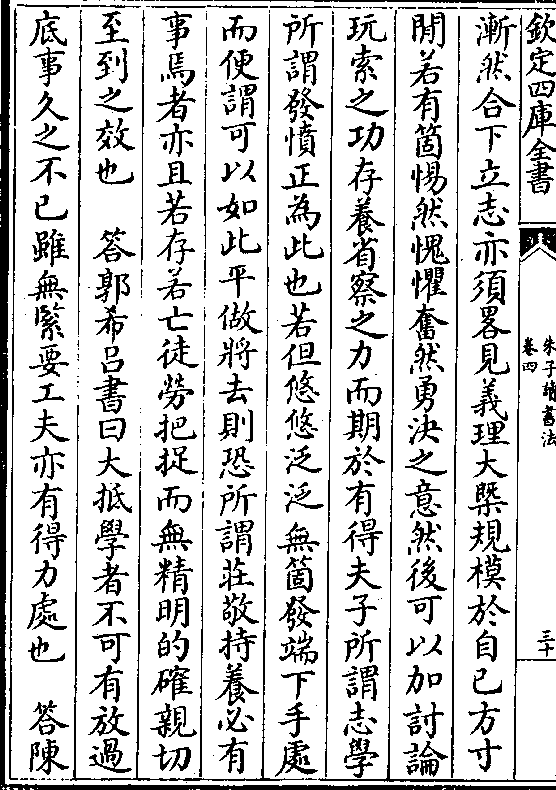 欽定四庫全書
朱子讀書法
卷四
三十
漸然合下立志亦須畧見義理大槩規模於自己方寸
閒若有箇惕然愧懼奮然勇決之意然後可以加討論
玩索之功存養省察之力而期於有得夫子所謂志學
所謂發憤正為此也若但悠悠泛泛無箇發端下手處
而便謂可以如此平做將去則恐所謂莊敬持養必有
事焉者亦且若存若亡徒勞把捉而無精明的確親切
至到之效也　答郭希吕書曰大抵學者不可有放過
底事久之不已雖無緊要工夫亦有得力處也　答陳